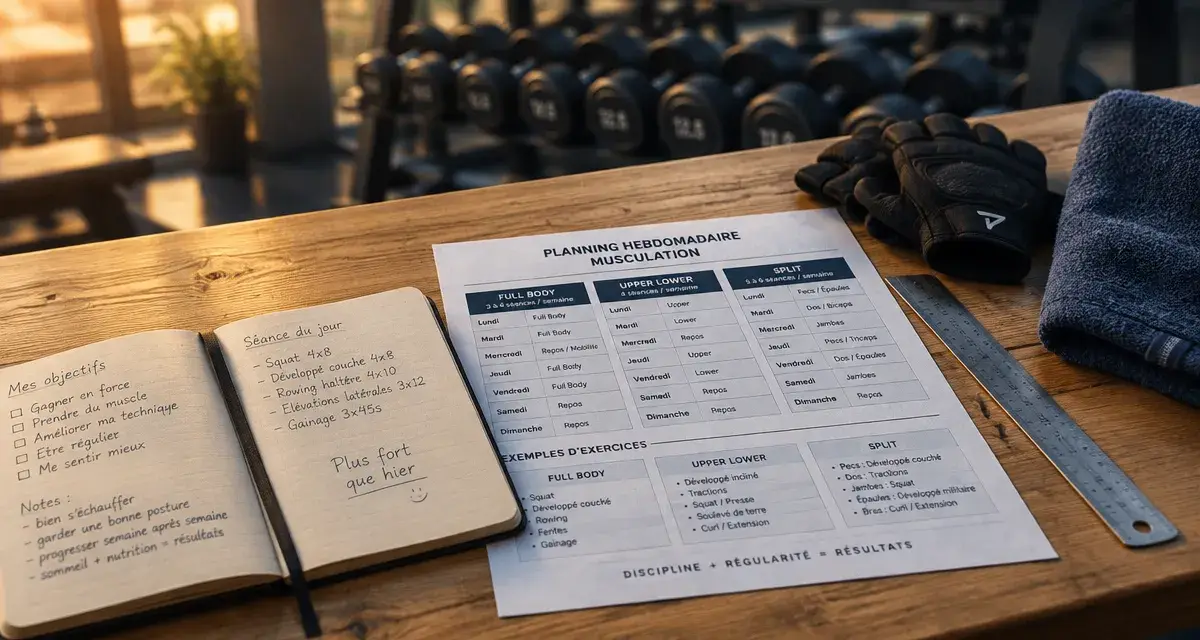 Mes objectifs
☐ Gagner en force
☐ Prendre du muscle
☐ Améliorer ma technique
☐ Etre régulier
☐ Me sentir mieux
Notes :
- bien s'échauffer
- garder une bonne posture
- progresser semaine après semaine
- sommeil + nutrition = résultats
Séance du jour
- Squat 4x8
- Développé couche 4x8
- Rowing haltère 4x10
- Elévations latérales 3x12
- Gainage 3x45s
Plus fort
que hier
PLANNING HEBDOMADAIRE
MUSCULATION
FULL BODY
séances / semaine
Lundi Full Body
Mardi Full Body
Mercredi Repos / Mobilité
Jeudi Full Body
Vendredi Full Body
Samedi Repos
Dimanche Repos
UPPER LOWER
séances / semaine
Lundi Upper
Mardi Lower
Mercredi Repos
Jeudi Upper
Vendredi Lower
Samedi Repos
Dimanche Repos
SPLIT
séances / semaine
Lundi Pecs / Épaules
Mardi Dos / Biceps
Mercredi Jambes
Jeudi Pecs / Triceps
Vendredi Dos / Épaules
Samedi Jambes
Dimanche Repos
EXEMPLES D'EXERCICES
FULL BODY
• Squat
• Développé couché
• Rowing
• Fentes
• Gainage
UPPER LOWER
• Développé incliné
• Tractions
• Squat / Presse
• Soulevé de terre
• Curl / Extension
SPLIT
• Pecs : Développé couché
• Dos : Tractions
• Jambes : Squat
• Épaules : Développé militaire
• Bras : Curl / Extension
DISCIPLINE + RÉGULARITÉ = RÉSULTATS
12.5